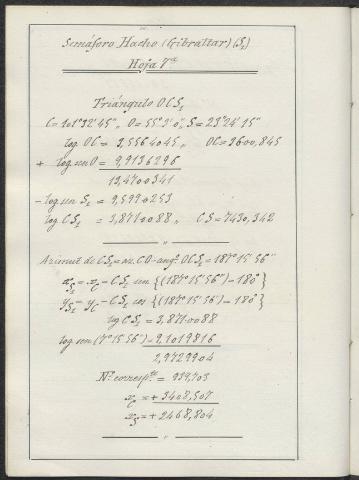 Semáforo Hacho (Gibraltar) (S₁)
Hoja 7ª
Triángulo O C S₁
C = 101°32'45" „ O = 55°3'0", S = 23°24'15"
log. OC = 3,5564045 „ OC = 3600,845
+ log. sen O = 9,9136296
13,4700341
- log. sen S₁ = 9,5990253
log. CS₁ = 3,8710088 „ CS = 7430,342
„
Azimut de CS₁ = az. CO - angº. OCS₁ = 187°15'56"
x_S₁ = x_C - CS₁ sen {(187°15'56") - 180°}
y_S₁ = y_C - CS₁ cos {(187°15'56") - 180°}
log CS₁ = 3,8710088
log sen (7°15'56") = 9,1019816
2,9729904
Nº. corresp.te = 939,703
x_C = + 3408,507
x_S = + 2468,804
„